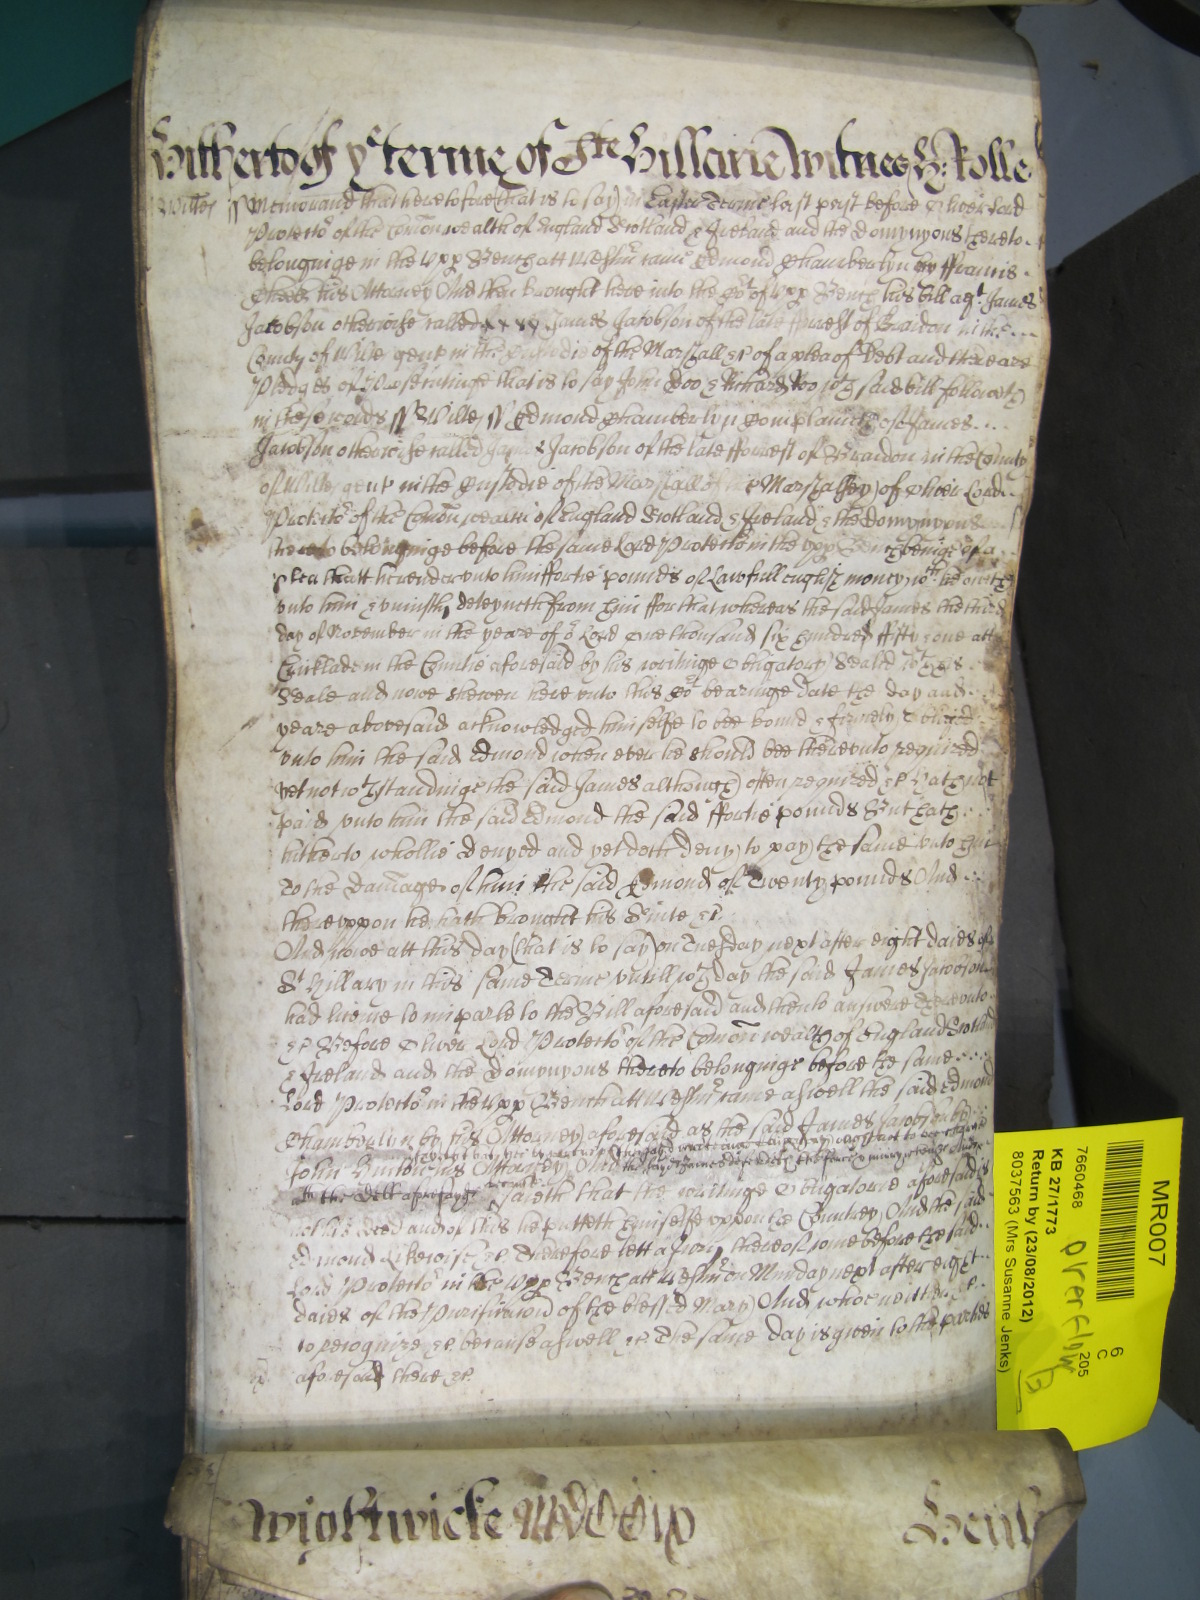 Hitherto of ye terme of Ste Hillarie Witnes H: Rolle
Wiltes ss Memorand that heretofore (that is to say) in Easter Terme last past before Oliver Lord
Protector of the Comon wealth of England Scotland & Ireland and the Domynyons thereto
belonginge in the Upp Bench att Westmr came Edmond Chamberlyn by ffrancis
his Attorney And then brought here into the Cot of Upp Bench his bill agt James
Jacobson otherwise called James Jacobson of the late fforrest of Braidon in the
County of Wiltes gent in the Custodie of the Marshall &c of a plea of debt and there are
Pledges of Prosecutinge that is to say John Doo & Richard Roo wch said bill followeth
in these words ss Wiltes ss Edmond Chamberlyn Complaineth of James
Jacobson otherwise called James Jacobson of the late fforrest of Braidon in the County
of Wiltes gent in the Custodie of the Marshall of the Marshalsey of Oliver Lord
Protector of the Comon wealth of England Scotland & Ireland & the Domynyons
thereto belonginge before the same Lord Protector in the Upp Bench beinge of a
plea thatt he render unto him ffortie pounds of Lawfull english money wch he oweth
unto him & uniustly deteyneth from him ffor that whereas the said James the third
day of November in the yeare of or Lord One thousand six hundred ffifty & one att
Cricklade in the Countie aforesaid by his writinge Obligatory Seald wth his
Seale and nowe shewen here unto this Cot bearinge date the day and
yeare abovesaid acknowledged himselfe to bee bound & firmely Obliged
unto him the said Edmond when ever he should bee thereunto required
yet notwthstandinge the said James although often required &c hath not
paid unto him the said Edmond the said ffortie pounds But hath
hitherto whollie denyed and yet doth deny to pay the same unto him
To the Damage of him the said Edmond of Twenty pounds And
thereuppon he hath brought his Suite &c
And nowe att this day (that is to say) on Tuesday next after eight daies of
St Hillary in this same Terme untill wch day the said James Jacobson
had licence to imparle to the Bill aforesaid and then to answere thereunto
&c Before Oliver Lord Protector of the Comon wealth of England Scotland
& Ireland and the Domynyons thereto belonginge before the same
Lord Protector in the Upp Bench att Westmr came aswell the said Edmond
Chamberlyn by his Attorney aforesaid as the said James Jacobson by
John his Attorney And the said James defendeth the force & iniury when &c And
the debt aforesayd saieth that the writinge Obligatorie aforesaid is
not his deed and of this he putteth himselfe uppon the Countrey And the said
Edmond Likewise &c Therefore lett a Jury thereof come before the said
Lord Protector in the Upp Bench att Westmr on Munday next after eight
daies of the Purificacion of the blessed Mary And whoe neither &c
to recognize &c because aswell &c The same day is given to the parties
aforesaid there &c
Wightwicke
MR007
7660468
KB 27/1773
Return by (23/08/2012)
8037563 (Mrs Susanne Jenks)
Overflow
6
C
205
13